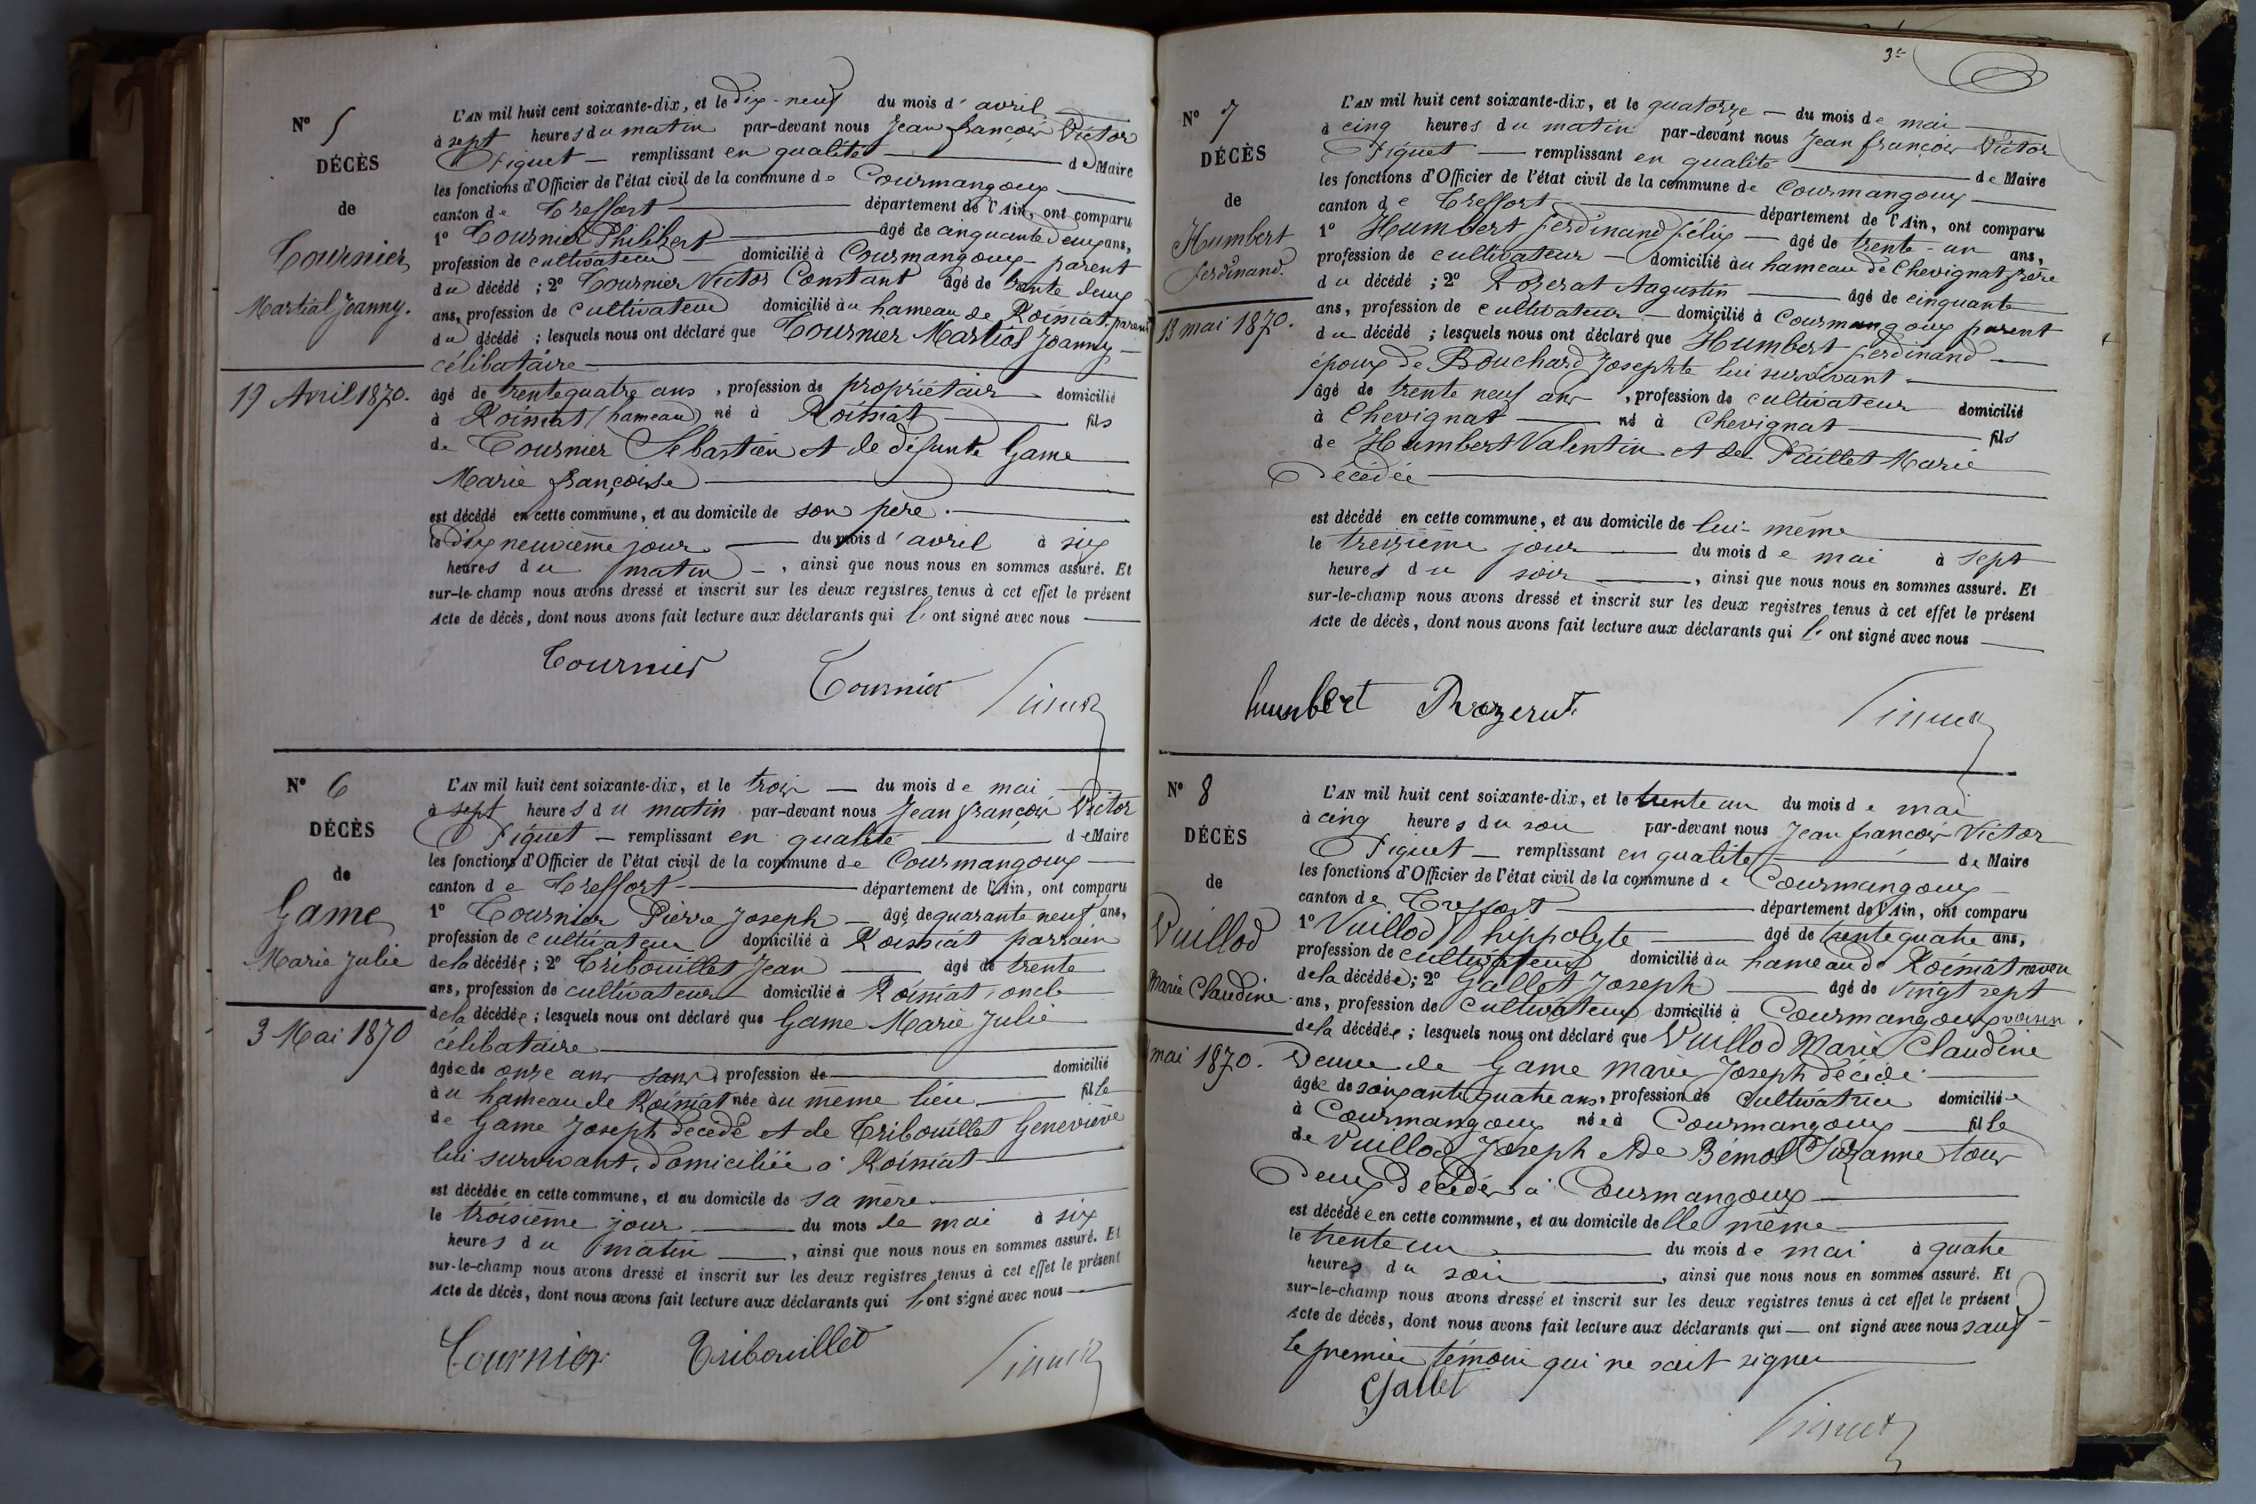 N° 5
DÉCÈS
de
Tournier
Martial Joanny.
19 Avril 1870.
L'AN mil huit cent soixante-dix, et le dix-neuf du mois d'avril
à sept heures du matin par-devant nous Jean françois Victor
Piquet remplissant en qualité de Maire
les fonctions d'Officier de l'état civil de la commune de Courmangoux
canton de Treffort département de l'Ain, ont comparu
1° Tournier Philibert âgé de cinquante deux ans,
profession de cultivateur domicilié à Courmangoux parent
du décédé ; 2° Tournier Victor Constant âgé de trente deux
ans, profession de cultivateur domicilié au hameau de Roissiat parent
du décédé ; lesquels nous ont déclaré que Tournier Martial Joanny
célibataire
âgé de trente quatre ans, profession de propriétair domicilié
à Roissiat (hameau) né à Roissiat fils
de Tournier Sébastien et de défunte Game
Marie françoise
est décédé en cette commune, et au domicile de son père.
le dix neuvième jour du mois d'avril à six
heures du matin, ainsi que nous nous en sommes assuré. Et
sur-le-champ nous avons dressé et inscrit sur les deux registres tenus à cet effet le présent
Acte de décès, dont nous avons fait lecture aux déclarants qui l'ont signé avec nous
Tournier Tournier
N° 6
DÉCÈS
de
Game
Marie Julie
3 Mai 1870
L'AN mil huit cent soixante-dix, et le trois du mois de mai
à sept heures du matin par-devant nous Jean françois Victor
Piquet remplissant en qualité de Maire
les fonctions d'Officier de l'état civil de la commune de Courmangoux
canton de Treffort département de l'Ain, ont comparu
1° Tournier Pierre Joseph âgé de quarante neuf ans,
profession de cultivateur domicilié à Roissiat parrain
de la décédée ; 2° Tribouillet Jean âgé de trente
ans, profession de cultivateur domicilié à Roissiat, oncle
de la décédée ; lesquels nous ont déclaré que Game Marie Julie
célibataire
âgée de onze ans sans profession de domicilié
au hameau de Roissiat née au même lieu fille
de Game Joseph décédé et de Tribouillet Geneviève
lui survivant, domiciliée à Roissiat
est décédée en cette commune, et au domicile de sa mère
le troisième jour du mois de mai à six
heures du matin, ainsi que nous nous en sommes assuré. Et
sur-le-champ nous avons dressé et inscrit sur les deux registres tenus à cet effet le présent
Acte de décès, dont nous avons fait lecture aux déclarants qui l'ont signé avec nous
Tournier Tribouillet
3e
N° 7
DÉCÈS
de
Humbert
ferdinand.
13 mai 1870.
L'AN mil huit cent soixante-dix, et le quatorze du mois de mai
à cinq heures du matin par-devant nous Jean françois Victor
Piquet remplissant en qualité de Maire
les fonctions d'Officier de l'état civil de la commune de Courmangoux
canton de Treffort département de l'Ain, ont comparu
1° Humbert ferdinand félix âgé de trente-un ans,
profession de cultivateur domicilié au hameau de Chevignat frère
du décédé ; 2° Rozerat Augustin âgé de cinquante
ans, profession de cultivateur domicilié à Courmangoux parent
du décédé ; lesquels nous ont déclaré que Humbert ferdinand
époux de Bouchard Josephte lui survivant
âgé de trente neuf ans, profession de cultivateur domicilié
à Chevignat né à Chevignat fils
de Humbert Valentin et de Paillet Marie
Décédée
est décédé en cette commune, et au domicile de lui-même
le treizième jour du mois de mai à sept
heures du soir, ainsi que nous nous en sommes assuré. Et
sur-le-champ nous avons dressé et inscrit sur les deux registres tenus à cet effet le présent
Acte de décès, dont nous avons fait lecture aux déclarants qui l'ont signé avec nous
humbert Rozerat
N° 8
DÉCÈS
de
Vuillod
Marie Claudine
mai 1870.
L'AN mil huit cent soixante-dix, et le trente un du mois de mai
à cinq heures du soir par-devant nous Jean françois Victor
Piquet remplissant en qualité de Maire
les fonctions d'Officier de l'état civil de la commune de Courmangoux
canton de Treffort département de l'Ain, ont comparu
1° Vuillod hippolyte âgé de trente quatre ans,
profession de cultivateur domicilié au hameau de Roissiat neveu
de la décédée ; 2° Gallet Joseph âgé de vingt sept
ans, profession de cultivateur domicilié à Courmangoux voisin.
de la décédée ; lesquels nous ont déclaré que Vuillod Marie Claudine
Veuve de Game Marie Joseph décédé
âgée de soixante quatre ans, profession de cultivatrice domiciliée
à Courmangoux née à Courmangoux fille
de Vuillod Joseph et de Suzanne tous
Deux décédés à Courmangoux
est décédée en cette commune, et au domicile d'elle même
le trente un du mois de mai à quatre
heures du soir, ainsi que nous nous en sommes assuré. Et
sur-le-champ nous avons dressé et inscrit sur les deux registres tenus à cet effet le présent
Acte de décès, dont nous avons fait lecture aux déclarants qui ont signé avec nous sauf
le premier témoin qui ne sait signer
Gallet